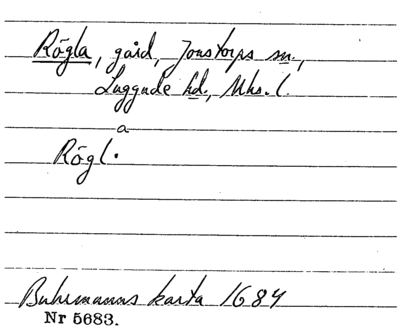 Rögla, gård, Jonstorps sn.,
Luggude hd., Mhs. l.
a
Rögl.
Buhrmanns karta 1684
Nr 5683.